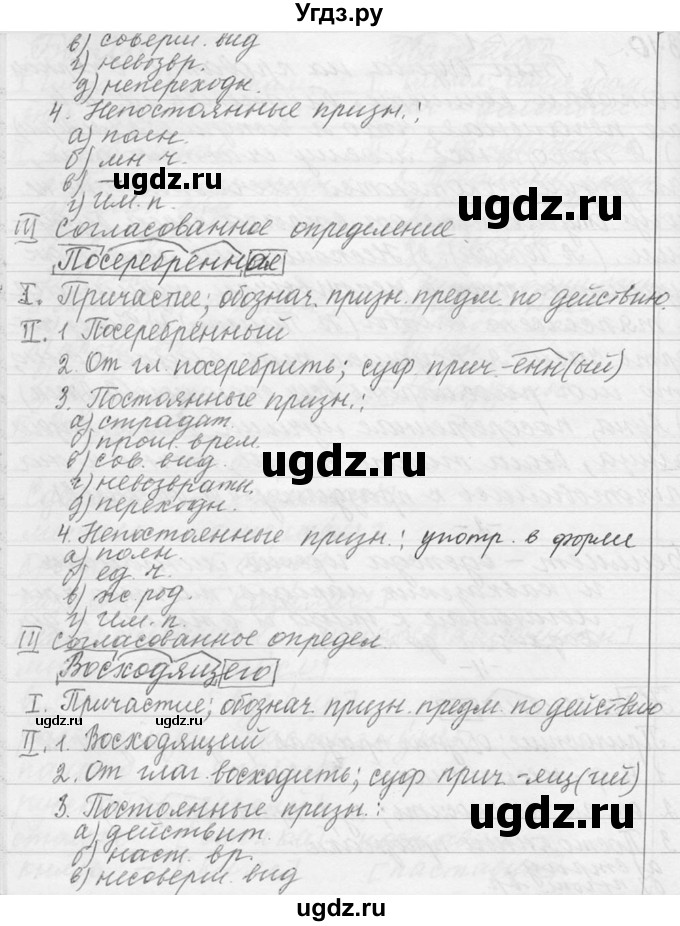 Угдз.ру
в) соверш. вид
г) невозвр.
д) непереходн.
4. Непостоянные призн.:
а) полн.
б) мн. ч.
в) –
г) Им. п.
ugdz.ru
ugdz.ru
III Согласованное определение.
Посеребрённая
I. Причастие; обознач. призн. предм. по действию.
II. 1 Посеребрённый
2. От гл. посеребрить; суф. прич. -ённ(ый)
3. Постоянные призн.:
а) страдат.
б) прош. врем.
в) сов. вид.
г) невозвратн.
д) переходн.
ugdz.ru
4. Непостоянные призн.: употр. в форме
а) полн.
б) ед. ч.
в) ж. род.
г) Им. п.
III Согласованное определ.
ugdz.ru
Восходящего
I. Причастие; обознач. призн. предм. по действию
ugdz.ru
ugdz.ru
II. 1. Восходящий
2. От глаг. восходить; суф. прич. -ящ(ий)
3. Постоянные призн.:
а) действит.
б) наст. вр.
в) несоверш. вид
ugdz.ru
ugdz.ru